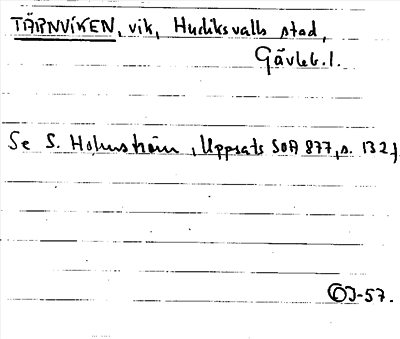 TÄRNVIKEN, vik, Hudiksvalls stad,
Gävleb. l.
Se S. Holmström, Uppsats SOA 877, s. 132f
OJ-57.